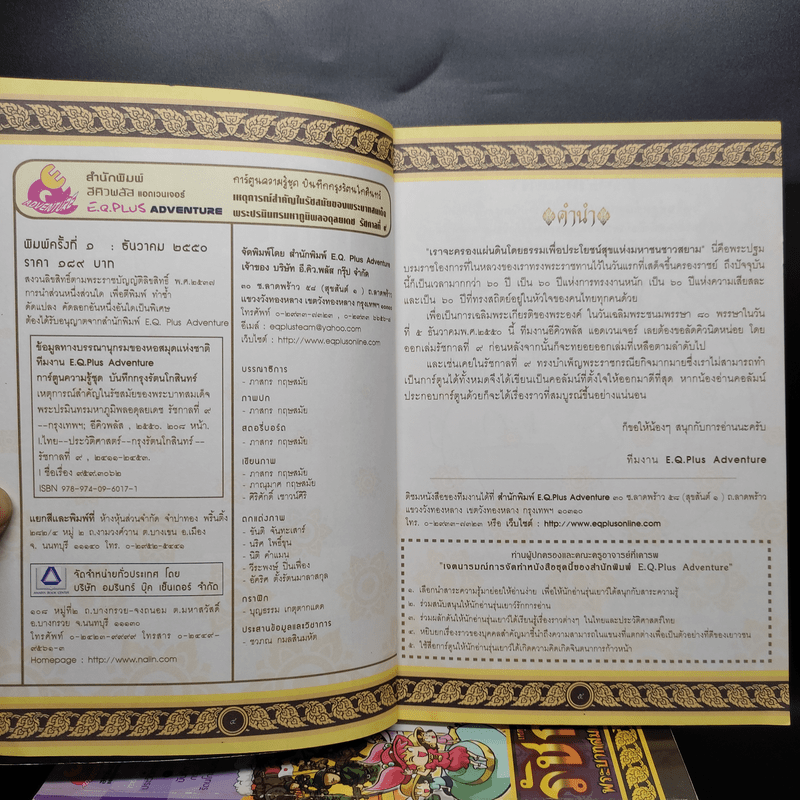 สำนักพิมพ์
อีคิวพลัส แอดเวนเจอร์
E.Q.PLUS ADVENTURE
EQ ADVENTURE
การ์ตูนความรู้ชุด บันทึกกรุงรัตนโกสินทร์
เหตุการณ์สำคัญในรัชสมัยของพระบาทสมเด็จ
พระปรมินทรมหาภูมิพลอดุลยเดช รัชกาลที่ ๙
พิมพ์ครั้งที่ ๑ : ธันวาคม ๒๕๕๐
ราคา ๑๘๙ บาท
สงวนลิขสิทธิ์ตามพระราชบัญญัติลิขสิทธิ์ พ.ศ.๒๕๓๗
การนำส่วนหนึ่งส่วนใด เพื่อตีพิมพ์ ทำซ้ำ
ดัดแปลง คัดลอกอันหนึ่งอันใดเป็นพิเศษ
ต้องได้รับอนุญาตจากสำนักพิมพ์ E.Q. Plus Adventure
ข้อมูลทางบรรณานุกรมของหอสมุดแห่งชาติ
ทีมงาน E.Q.Plus Adventure
การ์ตูนความรู้ชุด บันทึกกรุงรัตนโกสินทร์
เหตุการณ์สำคัญในรัชสมัยของพระบาทสมเด็จ
พระปรมินทรมหาภูมิพลอดุลยเดช รัชกาลที่ ๙
--กรุงเทพฯ: อีคิวพลัส , ๒๕๕๐. ๒๐๘ หน้า.
I.ไทย--ประวัติศาสตร์--กรุงรัตนโกสินทร์--
รัชกาลที่ ๙ , ๒๔๑๑-๒๔๕๓.
I ชื่อเรื่อง ๙๕๙.๓๐๖๒
ISBN 978-974-09-6017-1
แยกสีและพิมพ์ที่ ห้างหุ้นส่วนจำกัด จำปาทอง พริ้นติ้ง
๒๘๒/๔ หมู่ ๒ ถ.งามวงศ์วาน ต.บางเขน อ.เมือง
จ. นนทบุรี ๑๑๑๔๐ โทร. ๐-๒๙๕๒-๕๔๔๑
จัดจำหน่ายทั่วประเทศ โดย
บริษัท อมรินทร์ บุ๊ค เซ็นเตอร์ จำกัด
๑๐๘ หมู่ที่๒ ถ.บางกรวย-จงถนอม ต.มหาสวัสดิ์
อ.บางกรวย จ.นนทบุรี ๑๑๑๓๐
โทรศัพท์ ๐-๒๔๒๓-๙๙๙๙ โทรสาร ๐-๒๔๔๙-
๙๕๖๑-๓
Homepage : http://www.naiin.com
จัดพิมพ์โดย สำนักพิมพ์ E.Q. Plus Adventure
เจ้าของ บริษัท อี.คิว.พลัส กรุ๊ป จำกัด
๓๐ ซ.ลาดพร้าว ๕๘ (สุขสันต์ ๑ ) ถ.ลาดพร้าว
แขวงวังทองหลาง เขตวังทองหลาง กรุงเทพฯ ๑๐๓๑๐
อีเมล์ : eqplusteam@yahoo.com
เว็บไซต์ : http://www.eqplusonline.com
บรรณาธิการ
- ภาสกร กฤษสมัย
ภาพปก
- ภาสกร กฤษสมัย
สตอรี่บอร์ด
- ภาสกร กฤษสมัย
เขียนภาพ
- ภาสกร กฤษสมัย
- ภาณุมาศ กฤษสมัย
- ศิริศักดิ์ เชาวน์ศิริ
ตกแต่งภาพ
- ขันติ จันทะเสาร์
- นริศ โพธิ์ขุน
- นิติ คำแมน
- วีระพงษ์ ปิ่นเฟื่อง
- อัคริศ ตั้งรัตนมาลาสกุล
กราฟิก
- บุญธรรม เกตุตากแดด
ประสานข้อมูลและวิชาการ
- ชวภณ กมลสินมหัต
คำนำ
"เราจะครองแผ่นดินโดยธรรมเพื่อประโยชน์สุขแห่งมหาชนชาวสยาม" นี่คือพระปฐม
บรมราชโองการที่ในหลวงของเราทรงพระราชทานไว้ในวันแรกที่เสด็จขึ้นครองราชย์ ถึงปัจจุบัน
นี้ก็เป็นเวลามากกว่า ๖๐ ปี เป็น ๖๐ ปีแห่งการทรงงานหนัก เป็น ๖๐ ปีแห่งความเสียสละ
และเป็น ๖๐ ปีที่ทรงสถิตย์อยู่ในหัวใจของคนไทยทุกคนด้วย
เพื่อเป็นการเฉลิมพระเกียรติของพระองค์ ในวันเฉลิมพระชนมพรรษา ๘๐ พรรษาในวัน
ที่ ๕ ธันวาคมพ.ศ.๒๕๕๐ นี้ ทีมงานอีคิวพลัส แอดเวนเจอร์ เลยต้องขอลัดคิวนิดหน่อย โดย
ออกเล่มรัชกาลที่ ๙ ก่อนแล้วหลังจากนั้นก็จะทยอยออกเล่มที่เหลือตามลำดับไป
และเช่นเคยในรัชกาลที่ ๙ ทรงบำเพ็ญพระราชกรณียกิจมากมายซึ่งเราไม่สามารถทำ
เป็นการ์ตูนได้ทั้งหมดจึงได้เขียนเป็นคอลัมน์ที่ตั้งใจให้ออกมาดีที่สุด หากน้องอ่านคอลัมน์
ประกอบการ์ตูนด้วยก็จะได้เรื่องราวที่สมบูรณ์ขึ้นอย่างแน่นอน
ก็ขอให้น้องๆ สนุกกับการอ่านนะครับ
ทีมงาน E.Q.Plus Adventure
ติชมหนังสือของทีมงานได้ที่ สำนักพิมพ์ E.Q.Plus Adventure ๓๐ ซ.ลาดพร้าว ๕๘ (สุขสันต์ ๑ ) ถ.ลาดพร้าว
แขวงวังทองหลาง เขตวังทองหลาง กรุงเทพฯ ๑๐๓๑๐
โทร. ๐-๒๙๓๓-๗๘๒๓ หรือ เว็บไซต์ : www.eqplusonline.com
ท่านผู้ปกครองและคณะครูอาจารย์ที่เคารพ
"เจตนารมณ์การจัดทำหนังสือชุดนี้ของสำนักพิมพ์ E.Q.Plus Adventure"
๑. เลือกนำสาระความรู้มาย่อยให้อ่านง่าย เพื่อให้นักอ่านรุ่นเยาว์ได้สนุกกับสาระความรู้
๒. ร่วมสนับสนุนให้นักอ่านรุ่นเยาว์รักการอ่าน
๓. ร่วมผลักดันให้นักอ่านรุ่นเยาว์ได้เรียนรู้เรื่องราวต่างๆ ในไทยและประวัติศาสตร์ไทย
๔. หยิบยกเรื่องราวของบุคคลสำคัญมาชี้นำถึงความสามารถในแขนงที่แตกต่างเพื่อเป็นตัวอย่างที่ดีของเยาวชน
๕. ใช้สื่อการ์ตูนให้นักอ่านรุ่นเยาว์ได้เกิดความคิดเกิดจินตนาการก้าวหน้า
รัช
พระบาทสม